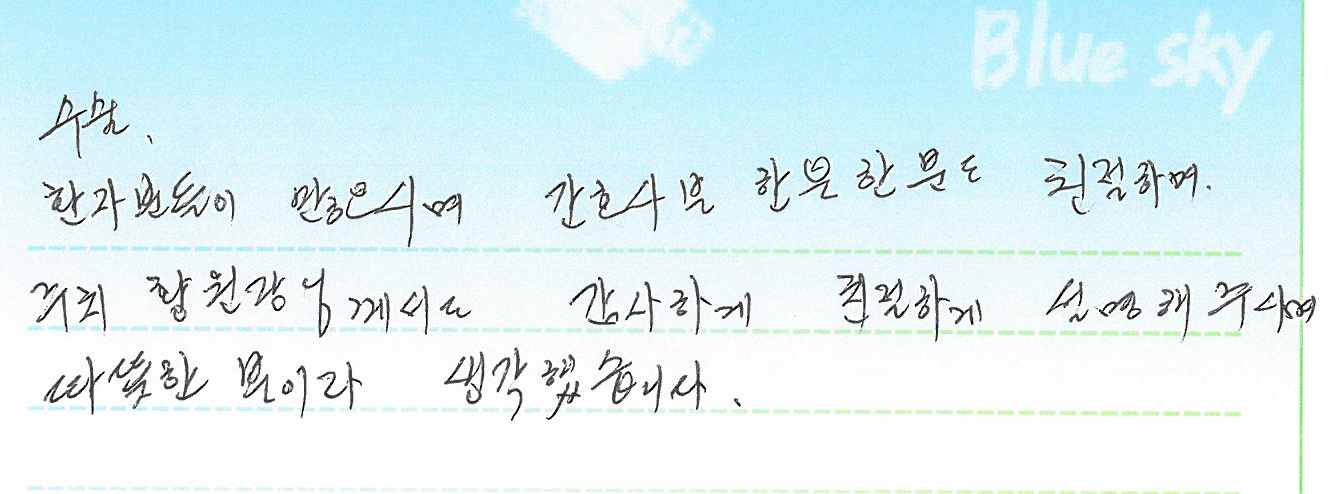 Blue sky
환자분들이 많으시며 간호사분 한분한분도 친절하며.
원장님께서는 감사하게 친절하게 설명해주시며
따뜻한 분이라 생각했습니다.